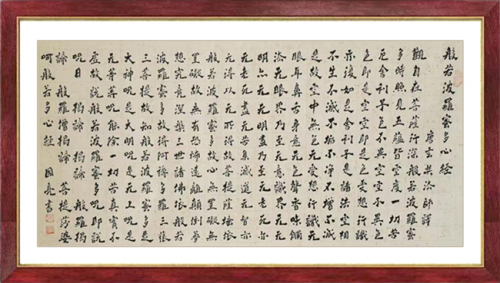 般若波羅蜜多心經
唐玄奘法師譯
觀自在菩薩行深般若波羅蜜
多時照見五蘊皆空度一切苦
厄舍利子色不異空空不異色
色即是空空即是色受想行識
亦復如是舍利子是諸法空相
不生不滅不垢不淨不增不減
是故空中無色无受想行識无
眼耳鼻舌身意无色聲香味觸
法无眼界乃至无意識界无无
明亦无无明盡乃至无老死亦
无老死盡无苦集滅道无智亦
无得以无所得故菩提薩埵依
般若波羅蜜多故心无罣礙无
罣礙故無有恐怖遠離顛倒夢
想究竟涅槃三世諸佛依般若
波羅蜜多故得阿耨多羅三藐
三菩提故知般若波羅蜜多是
大神咒是大明咒是无上咒是
无等等咒能除一切苦真實不
虛故說般若波羅蜜多咒即說
咒曰 揭諦揭諦 般羅揭
諦 般羅僧揭諦 菩提莎婆
呵般若多心經 國亮書